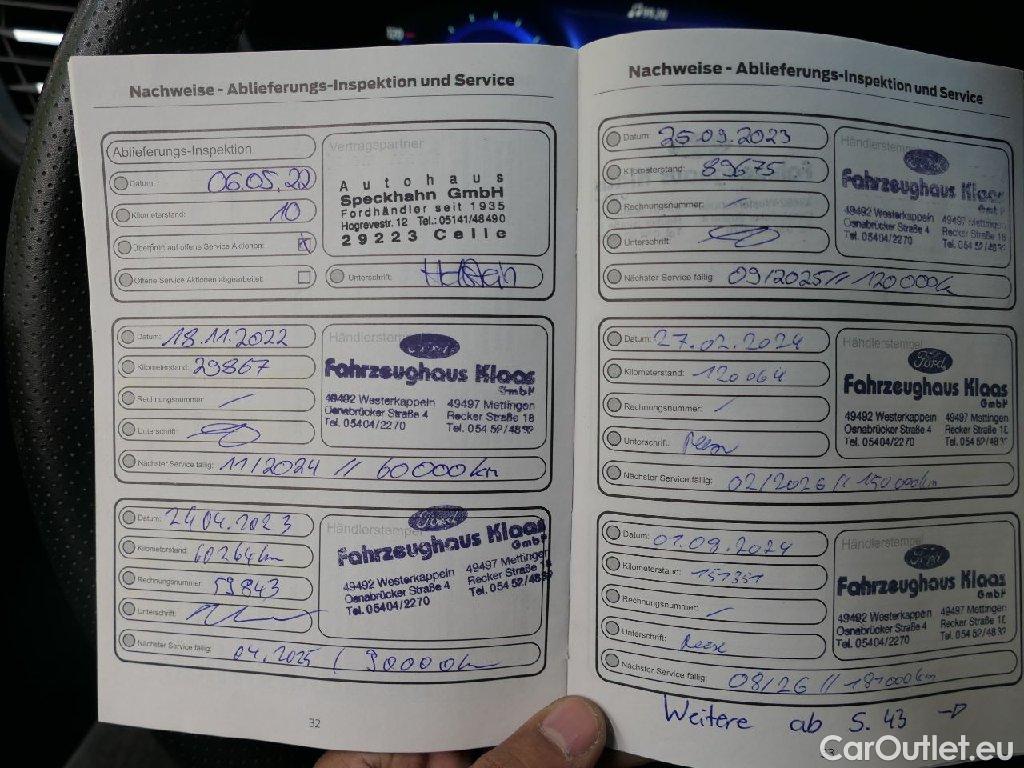 Nachweise - Ablieferungs-Inspektion und Service
Ablieferungs-Inspektion
Datum: 06.05.22
Kilometerstand: 10
Überprüft auf offene Service Aktionen:
Offene Service Aktionen abgearbeitet:
Vertragspartner
Autohaus
Speckhahn GmbH
Fordhändler seit 1935
Hogrevestr. 12 Tel.: 05141/48490
29223 Celle
Unterschrift:
Datum: 18.11.2022
Kilometerstand: 29867
Rechnungsnummer: /
Unterschrift:
Nächster Service fällig: 11/2024 // 60000km
Händlerstempel
Ford
Fahrzeughaus Klaas
GmbH
49492 Westerkappeln 49497 Mettingen
Osnabrücker Straße 4 Recker Straße 18
Tel. 05404/2270 Tel. 054 52/48
Datum: 24.04.2023
Kilometerstand: 60264km
Rechnungsnummer: 59843
Unterschrift:
Nächster Service fällig: 04.2025 / 90000km
Händlerstempel
Ford
Fahrzeughaus Klaas
GmbH
49492 Westerkappeln 49497 Mettingen
Osnabrücker Straße 4 Recker Straße 18
Tel. 05404/2270 Tel. 054 52/48
32
Nachweise - Ablieferungs-Inspektion und Service
Datum: 25.09.2023
Kilometerstand: 89675
Rechnungsnummer:
Unterschrift:
Nächster Service fällig: 09/2025 // 120000km
Händlerstempel
Ford
Fahrzeughaus Klaas
GmbH
49492 Westerkappeln 49497 Mettingen
Osnabrücker Straße 4 Recker Straße 18
Tel. 05404/2270 Tel. 054 52/48
Datum: 27.02.2024
Kilometerstand: 120064
Rechnungsnummer: /
Unterschrift:
Nächster Service fällig: 02/2026 // 150000km
Händlerstempel
Ford
Fahrzeughaus Klaas
GmbH
49492 Westerkappeln 49497 Mettingen
Osnabrücker Straße 4 Recker Straße 18
Tel. 05404/2270 Tel. 054 52/48
Datum: 01.09.2024
Kilometerstand: 151351
Rechnungsnummer: /
Unterschrift:
Nächster Service fällig: 08/26 // 181000km
Händlerstempel
Ford
Fahrzeughaus Klaas
GmbH
49492 Westerkappeln 49497 Mettingen
Osnabrücker Straße 4 Recker Straße 18
Tel. 05404/2270 Tel. 054 52/48
Weitere ab S. 43 →
CarOutlet.eu